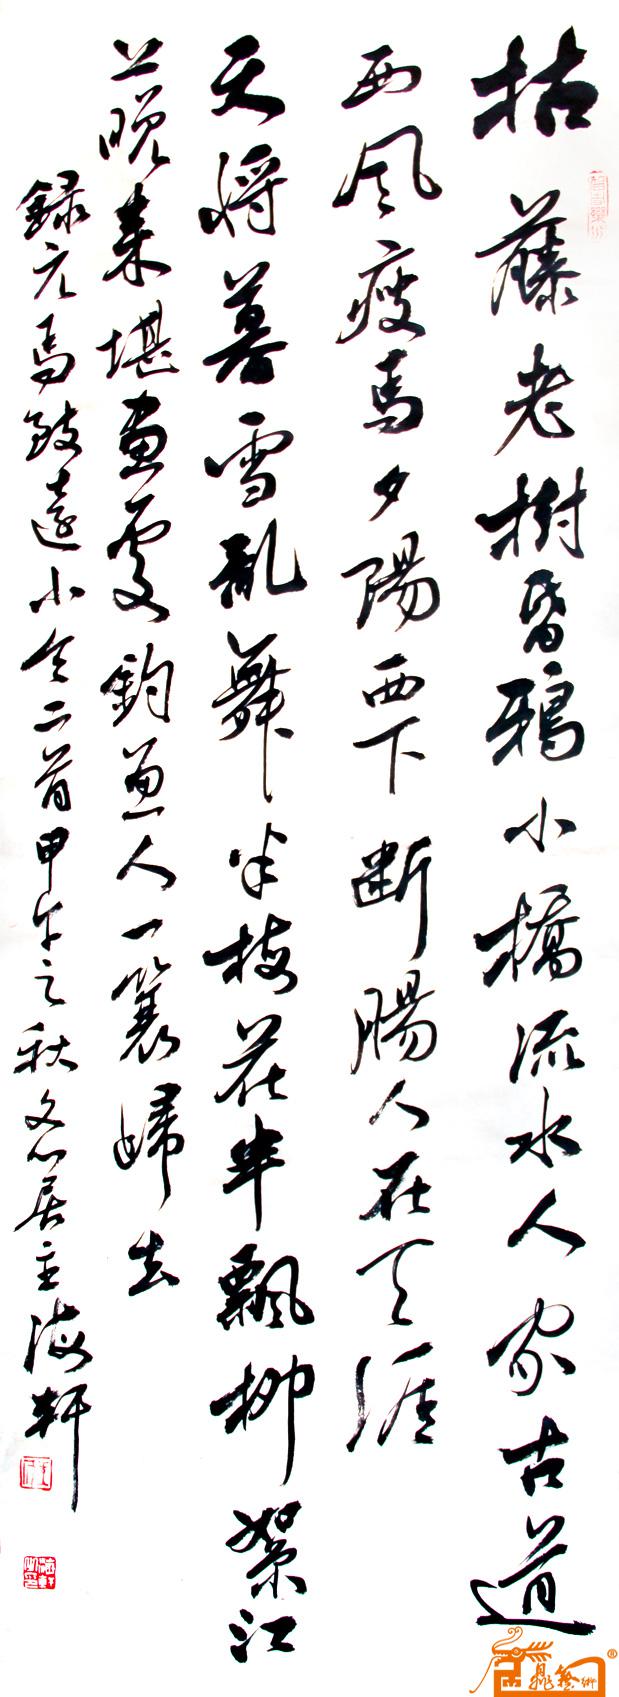 枯藤老樹昏鴉小橋流水人家古道
西風瘦馬夕陽西下斷腸人在天涯
天將暮雪亂舞半梅花半飄柳絮江
上晚來堪畫處釣魚人一蓑歸去
録元馬致遠小令二首甲午之秋文心居主海軒